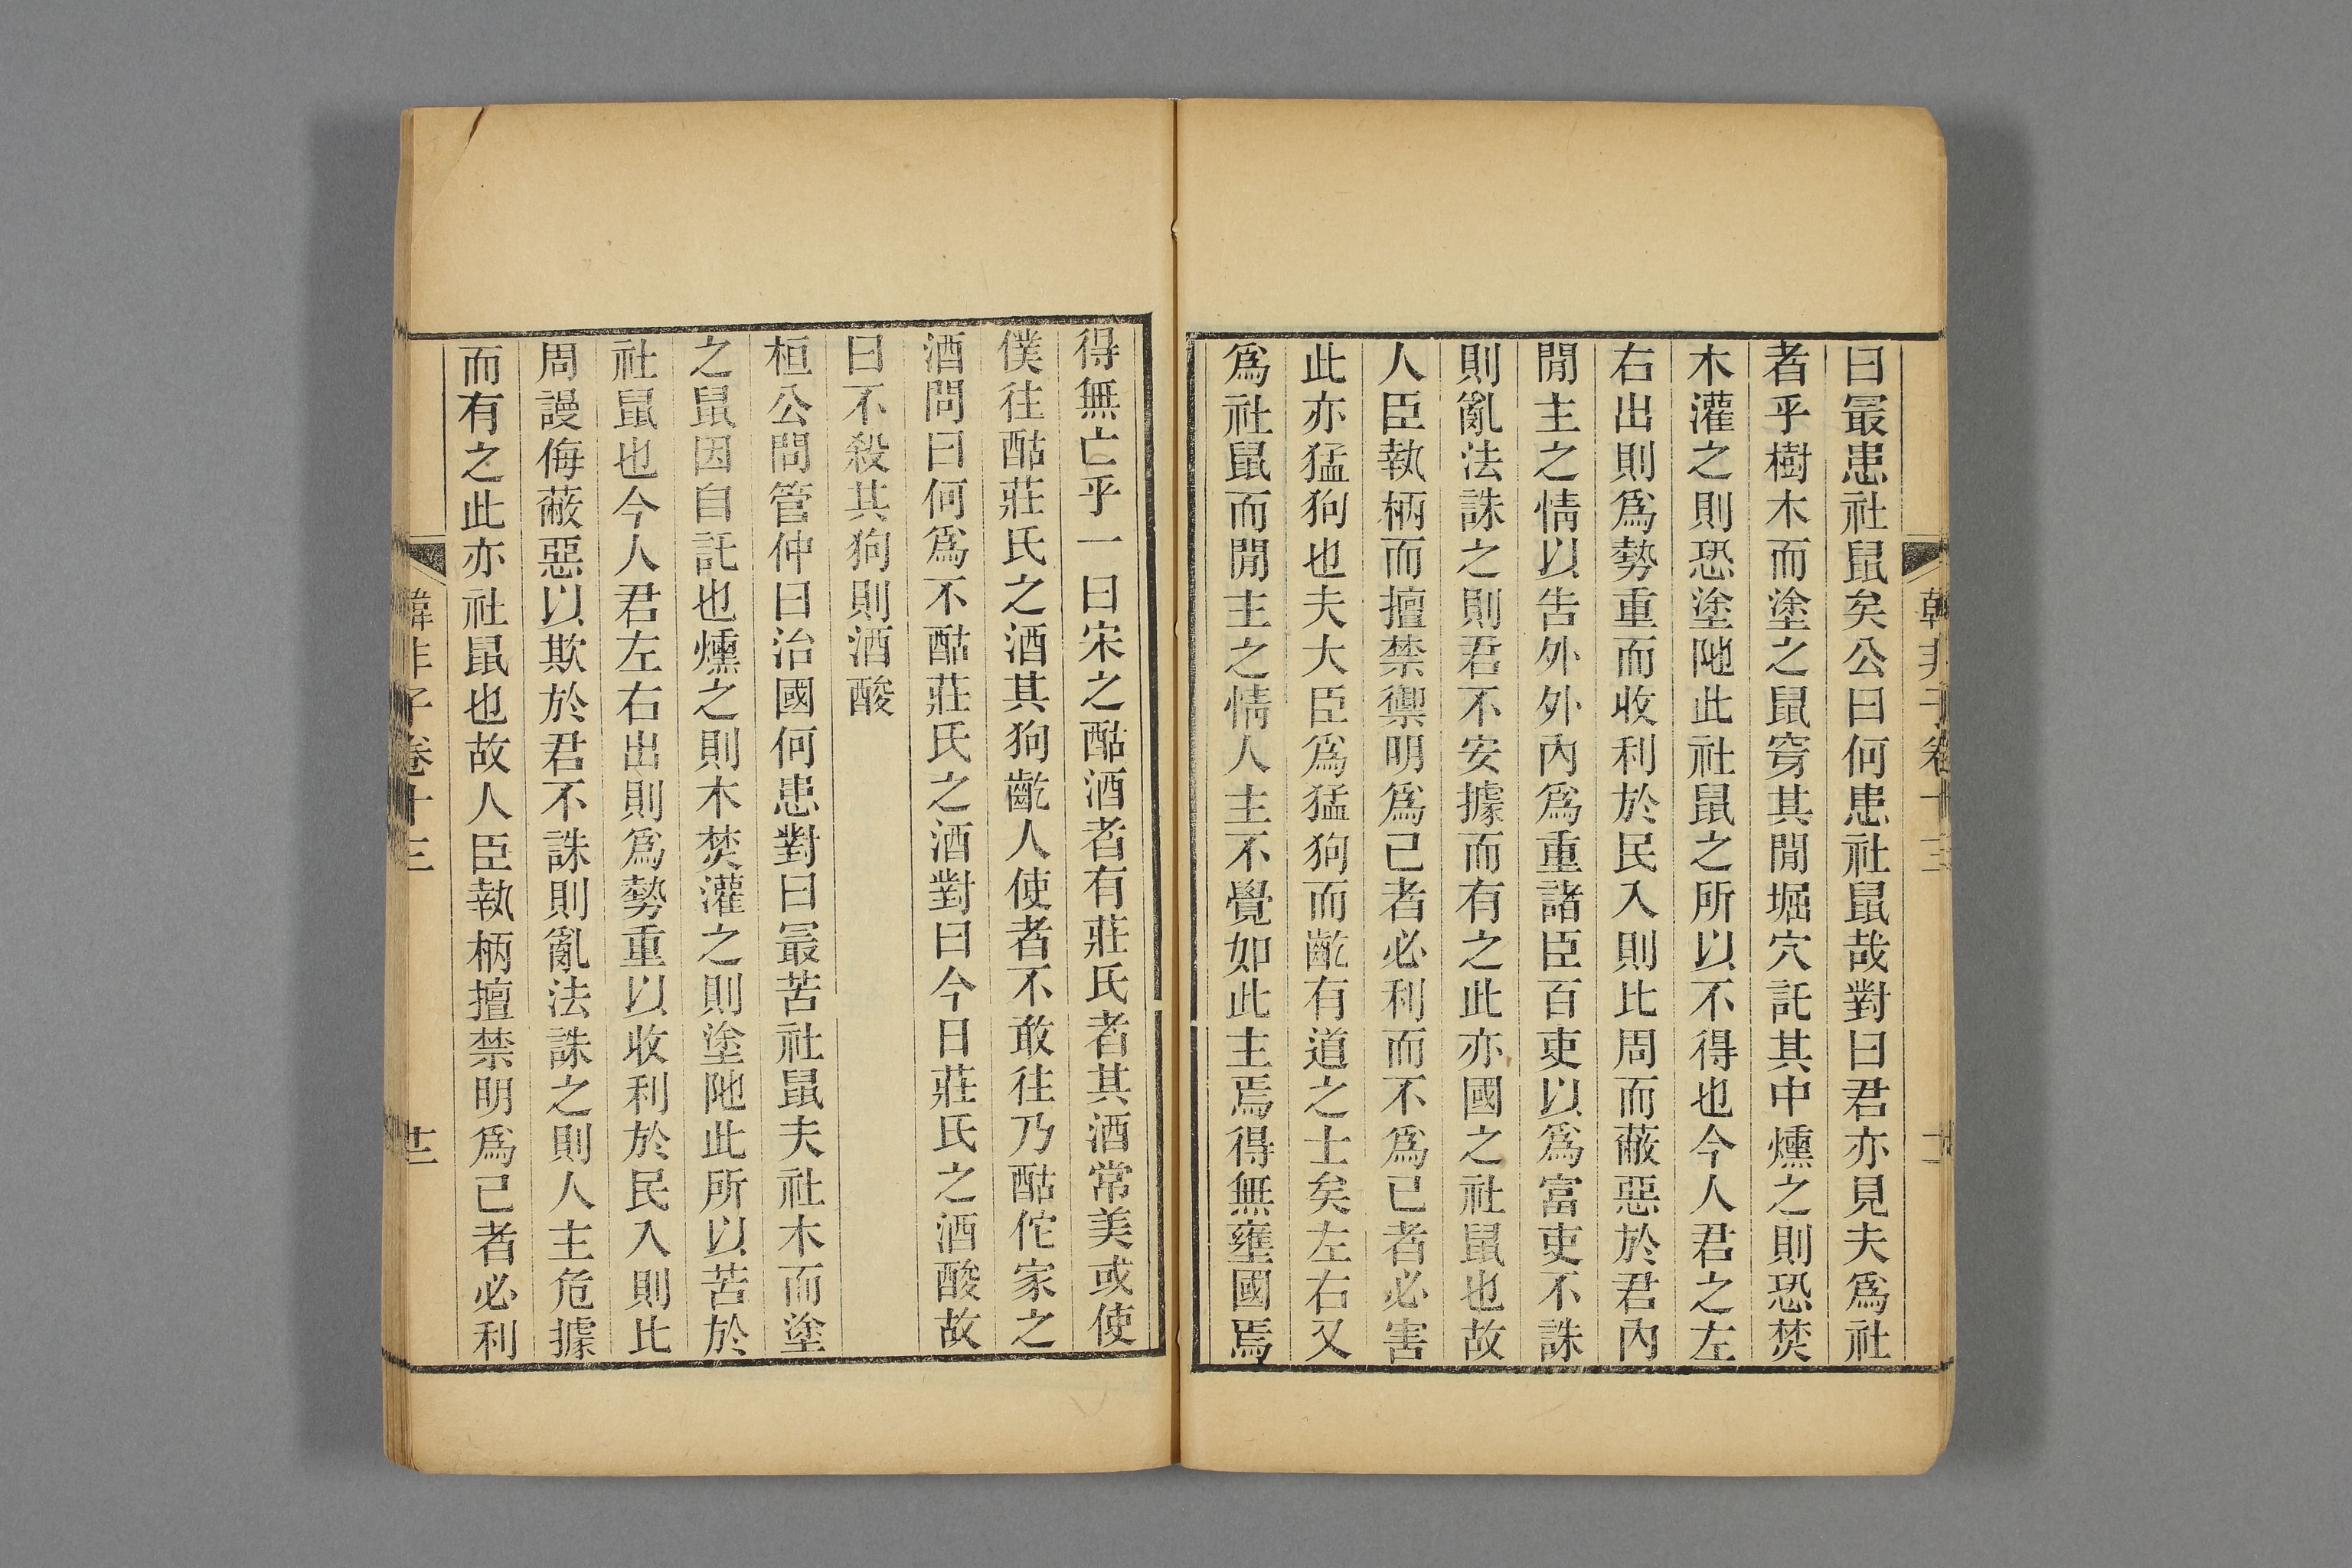 韓非子卷十三
曰最患社鼠矣公曰何患社鼠哉對曰君亦見夫爲社
者乎樹木而塗之鼠穿其閒堀穴託其中燻之則恐焚
木灌之則恐塗阤此社鼠之所以不得也今人君之左
右出則爲勢重而收利於民入則比周而蔽惡於君內
閒主之情以告外外內爲重諸臣百吏以爲富吏不誅
則亂法誅之則君不安據而有之此亦國之社鼠也故
人臣執柄而擅禁禦明爲己者必利而不爲己者必害
此亦猛狗也夫大臣爲猛狗而齕有道之士矣左右又
爲社鼠而閒主之情人主不覺如此主焉得無壅國焉
得無亡乎一曰宋之酤酒者有莊氏者其酒常美或使
僕往酤莊氏之酒其狗齕人使者不敢往乃酤佗家之
酒問曰何爲不酤莊氏之酒對曰今日莊氏之酒酸故
曰不殺其狗則酒酸
桓公問管仲曰治國何患對曰最苦社鼠夫社木而塗
之鼠因自託也燻之則木焚灌之則塗阤此所以苦於
社鼠也今人君左右出則爲勢重以收利於民入則比
周謾侮蔽惡以欺於君不誅則亂法誅之則人主危據
而有之此亦社鼠也故人臣執柄擅禁明爲己者必利
韓非子卷十三
十二